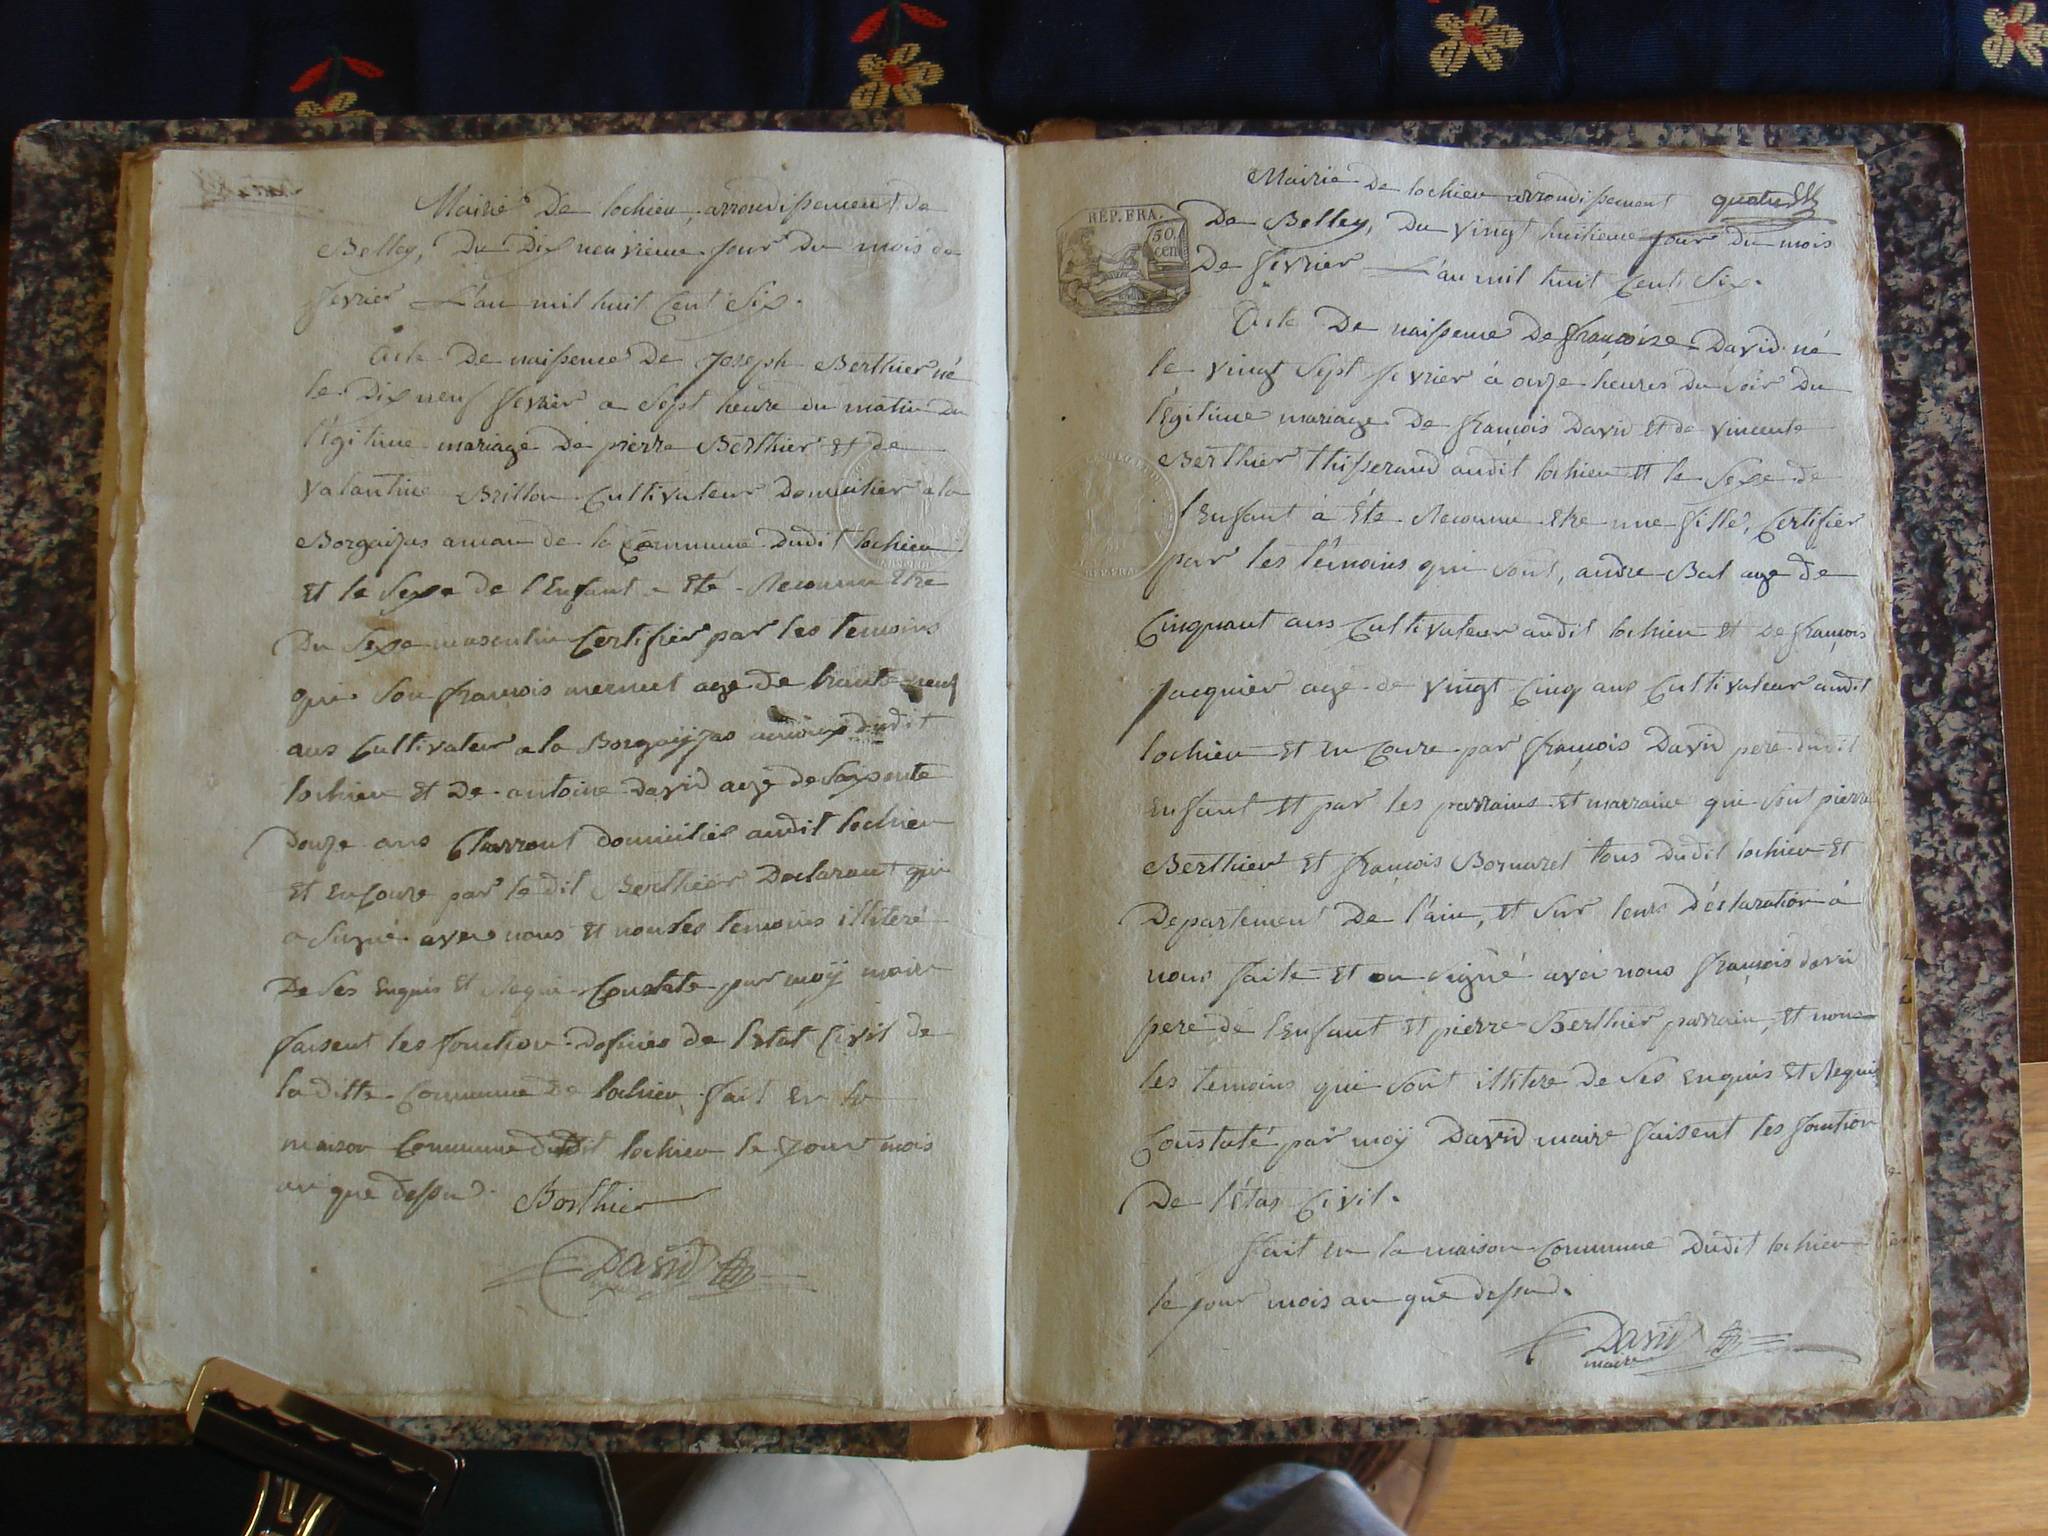 Mairie De lochieu, arrondissement de
Belley, Du Dix neuvieme Jour Du mois de
fevrier L'an mil huit Cent Six.
Acte De naissence De Joseph Berthier né
le Dix neuf fevrier a Sept heure du matin Du
légitime mariage De pierre Berthier et de
valantine Brillon Cultivateur Domicilier a la
de la Commune Dudit lochieu
Et le Sexe de l'Enfant a Eté Reconnu Etre
Du Sexe masculin Certifier par les temoins
qui Son françois mermet age De trante neuf
ans Cultivateur a la dudit
lochieu Et De antoine David agé de Soixsente
Douze ans Charront domicilier audit lochieu
Et Encoure par le dit Berthier Declarant qui
a Signé avec nous Et non les temoins illiteré
De Ses Enquis Et Requi Constate par moÿ maire
faisent les fonction Defices de l'etat Civil de
la ditte Commune De lochieu fait En la
maison Commune dudit lochieu le Jour mois
an que dessud. Berthier
David
REP. FRA.
50
cen
Mairie De lochieu arrondissement quatre
De Belley, Du vingt huitieme Jour Du mois
De fevrier L'an mil huit Cent Six.
Acte De naissence De françoise David né
le vingt Sept fevrier à onze heures Du Soir Du
légitime mariage De françois David Et de vincente
Berthier thisserand audit lochieu Et le Sexe de
l'Enfant à Eté Reconnu Etre une fille, Certifier
par les témoins qui Sont, andre Bal age De
Cinquant ans Cultivateur audit lochieu Et De françois
Jacquier age de vingt Cinq ans Cultivateur audit
lochieu Et En Coure par françois David pere dudit
Enfant Et par les parrains Et marraine qui Sont pierre
Berthier Et françois Bornarel tous Dudit lochieu Et
Departement De l'ain, Et Sur leurs Déclaration à
nous faite Et on Signé avec nous françois David
pere de l'Enfant Et pierre Berthier parrain, Et non
les temoins qui Sont illitere De Ses Enquis Et Requis
Constaté par moÿ David maire faisent les fonction
De l'Étas Civil.
fait En la maison Commune Dudit lochieu
le jour mois an que Dessud.
David
maire